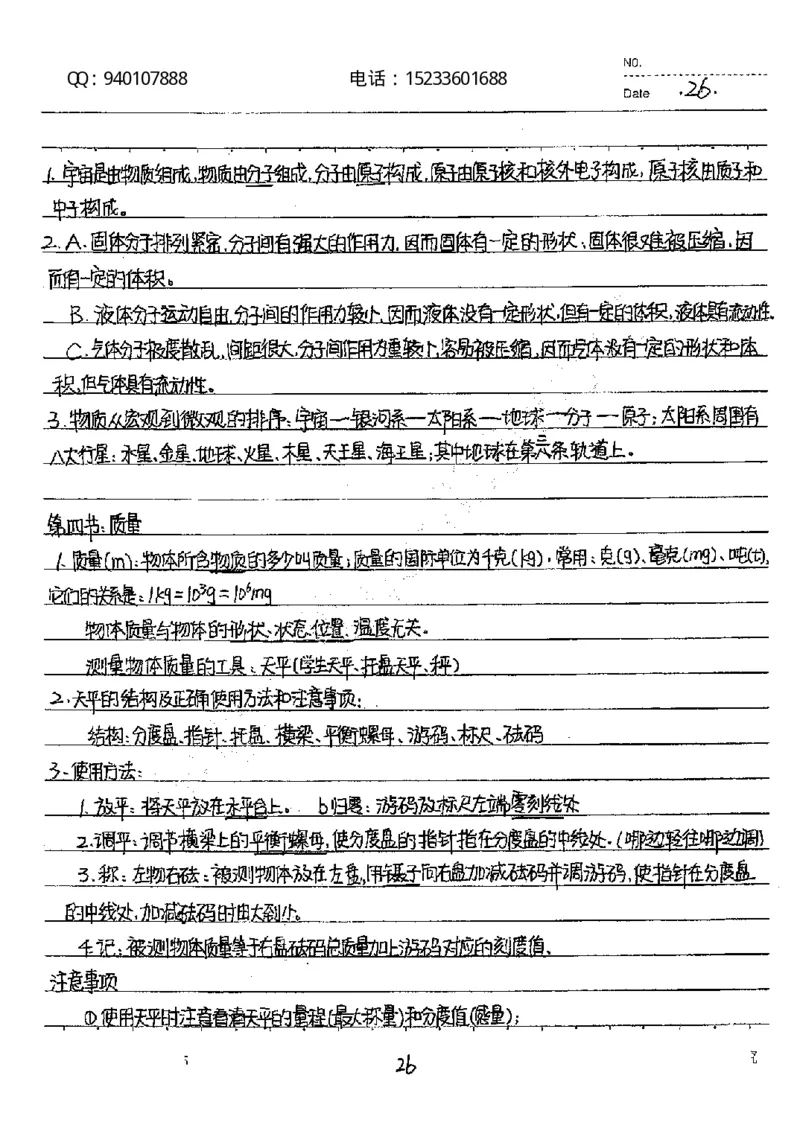 NO.
QQ：940107888 电话：15233601688
Date .26.
1.宇宙是由物质组成,物质由分子组成,分子由原子构成,原子由原子核和核外电子构成,原子核由质子和
中子构成。
2.A.固体分子排列紧密,分子间有强大的作用力,因而固体有一定的形状、固体很难被压缩,因
而有一定的体积。
B.液体分子运动自由,分子间的作用力较小,因而液体没有一定形状,但有一定的体积,液体具有流动性。
C.气体分子极度散乱,间距很大,分子间作用力更较小,容易被压缩,因而气体没有一定的形状和体
积,但气体具有流动性。
3.物质从宏观到微观的排序:宇宙—银河系—太阳系—地球—分子—原子;太阳系周围有
八大行星:水星、金星、地球、火星、木星、天王星、海王星;其中地球在第三条轨道上。
第四节:质量
1.质量(m):物体所含物质的多少叫质量;质量的国际单位为千克(kg),常用:克(g)、毫克(mg)、吨(t),
它们的关系是:1kg=10³g=10⁶mg
物体质量与物体的形状、状态、位置、温度无关。
测量物体质量的工具:天平(学生天平、托盘天平、秤)
2.天平的结构及正确使用方法和注意事项:
结构:分度盘、指针、托盘、横梁、平衡螺母、游码、标尺、砝码
3.使用方法:
1.放平:将天平放在水平台上。 b归零:游码放标尺左端零刻线处
2.调平:调节横梁上的平衡螺母,使分度盘的指针指在分度盘的中线处.(哪边轻往哪边调)
3.称:左物右砝:被测物体放在左盘,用镊子向右盘加减砝码并调游码,使指针在分度盘
的中线处,加减砝码时由大到小。
4.记:被测物体质量等于右盘砝码总质量加上游码对应的刻度值、
注意事项
①使用天平时注意看清天平的量程(最大称量)和分度值(感量);
26